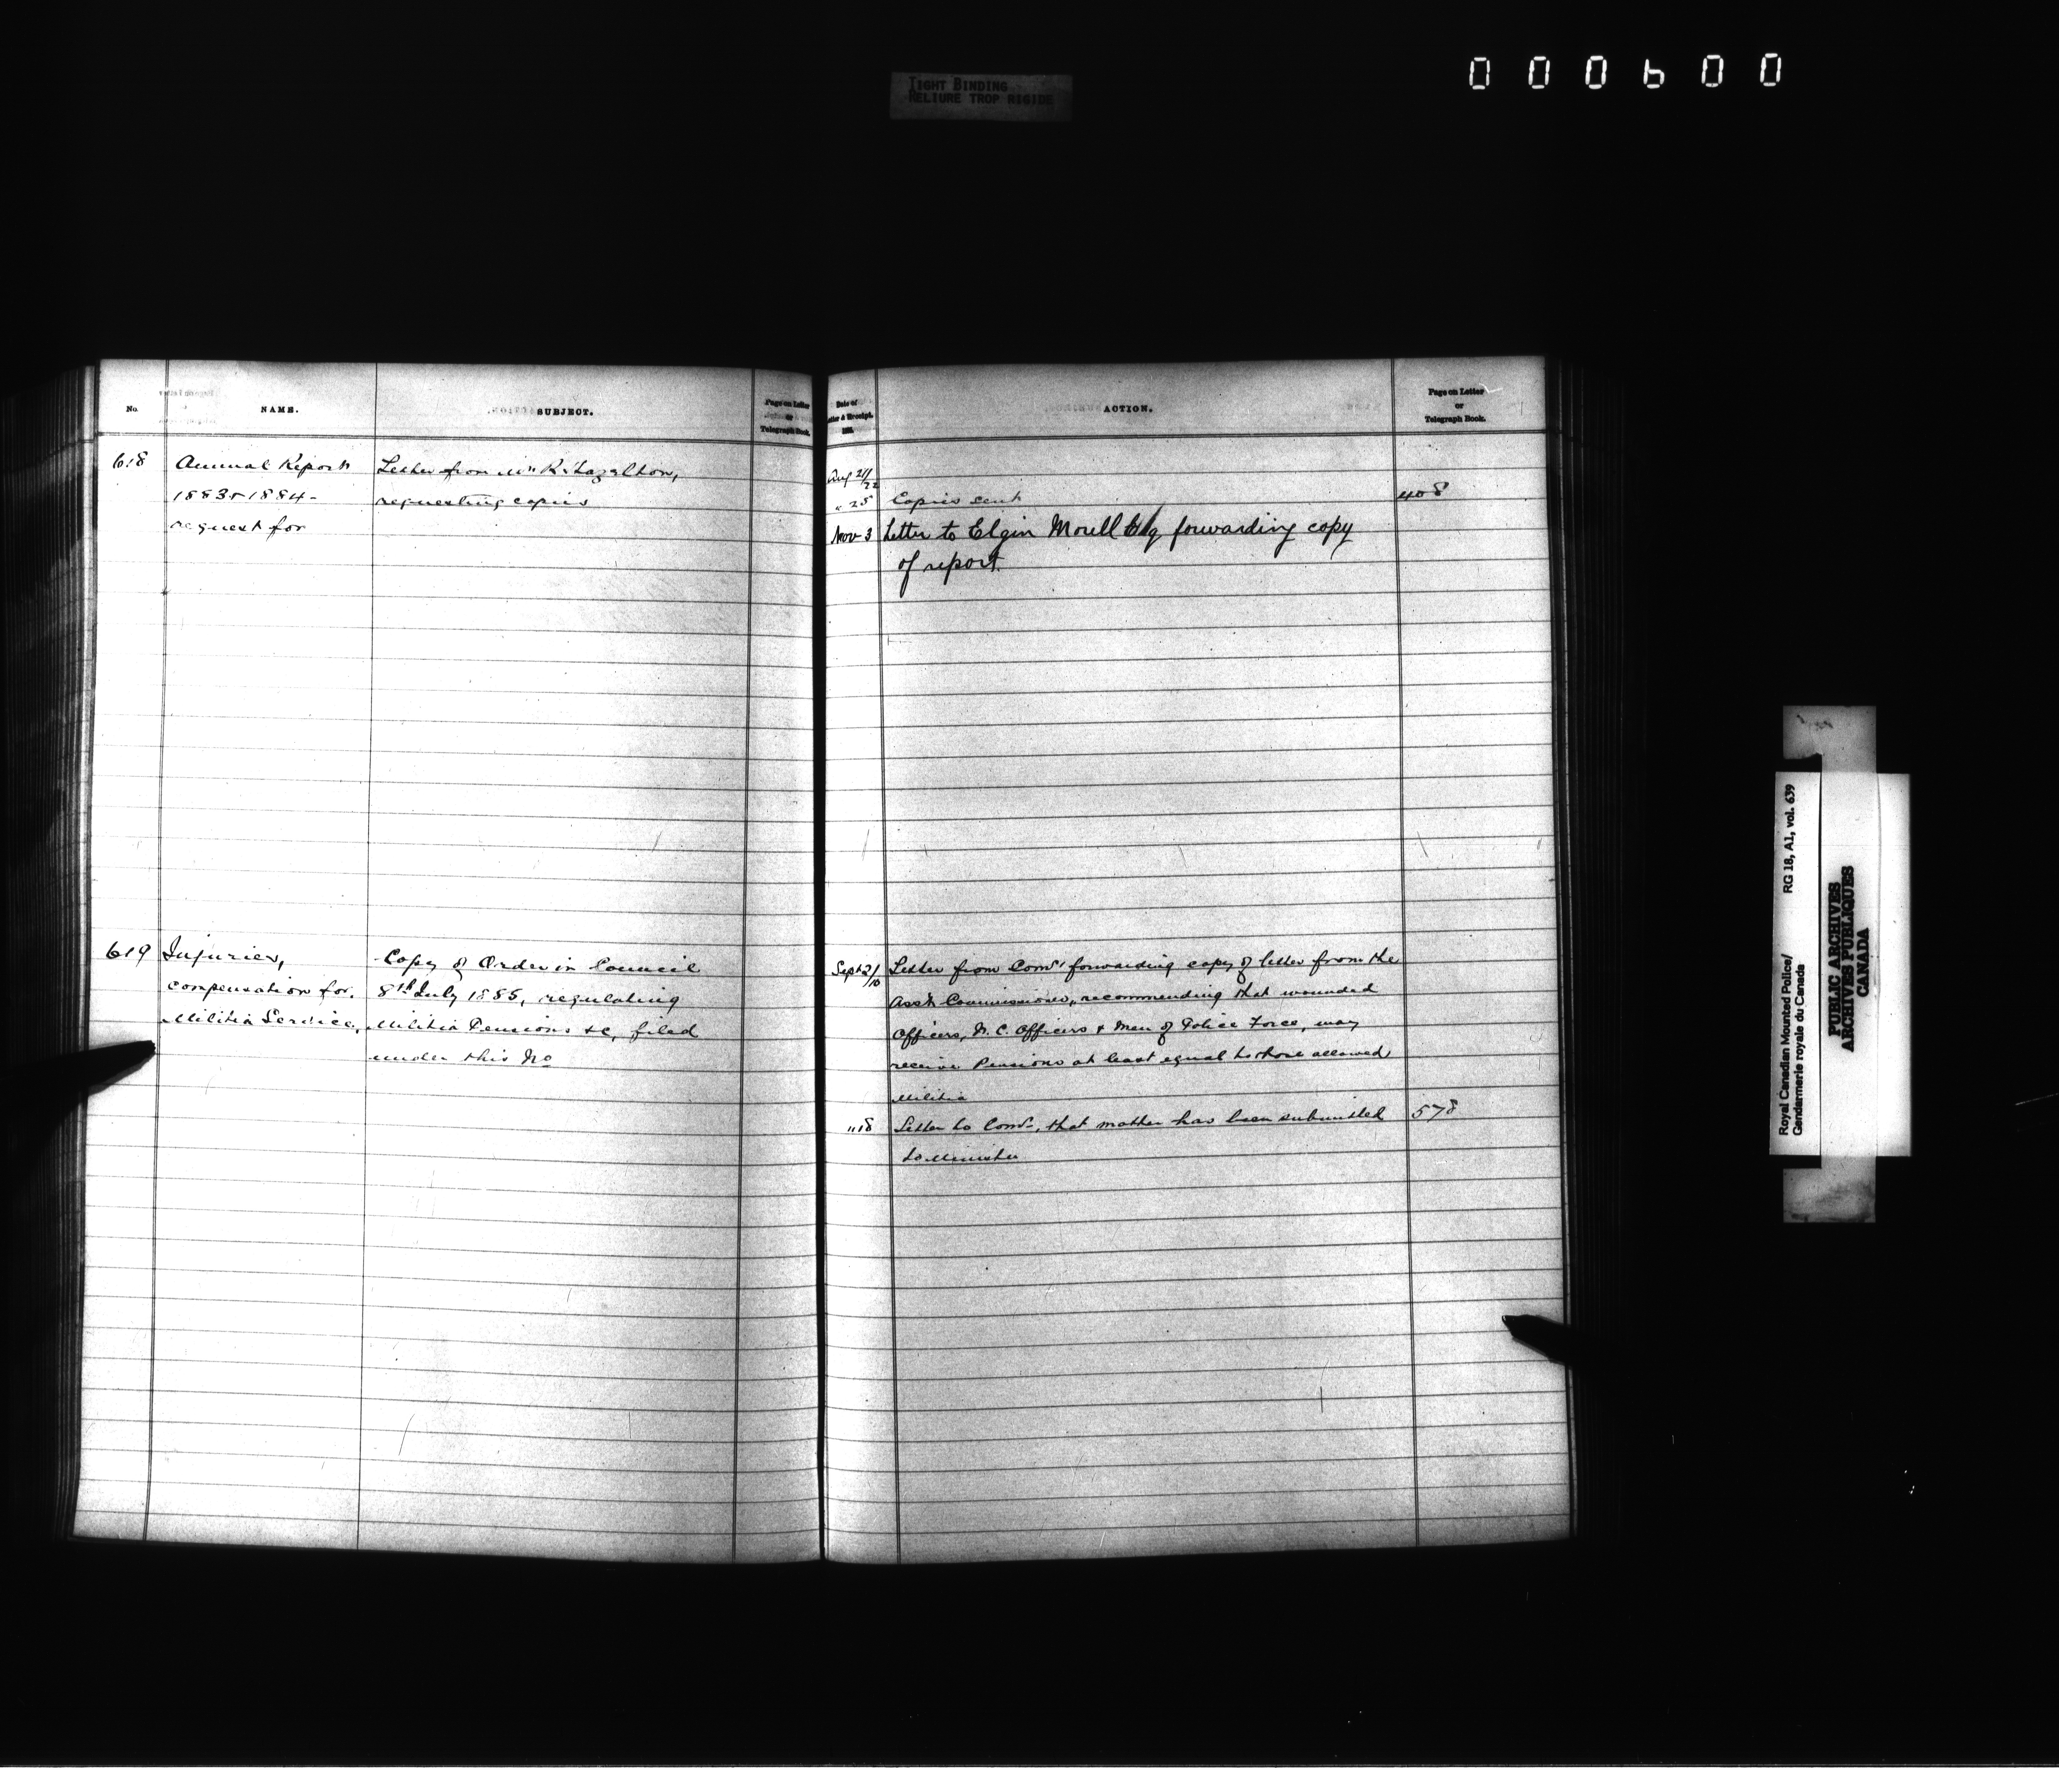 TIGHT BINDING
RELIURE TROP RIGIDE
000600
No.
NAME.
SUBJECT.
Page on Letter
or
Telegraph Book.
618
Annual Reports
1883 & 1884 -
request for
Letter from Mr R. Hazelton,
requesting copies
619
Injuries,
compensation for.
Militia Service.
Copy of Order in Council
8th July 1885, regulating
Militia Pensions &c, filed
under this No
Date of
Letter & Receipt.
188
ACTION.
Page on Letter
or
Telegraph Book.
Aug 21/22
" 25 Copies sent 408
Nov 3 Letter to Elgin Morell Esq forwarding copy
of report.
Sept 2/10 Letter from Comr forwarding copy of letter from the
Asst Commissioner, recommending that wounded
Officers, N.C. Officers & Men of Police Force, may
receive Pensions at least equal to those allowed
Militia
" 18 Letter to Comr, that matter has been submitted 578
to Minister
Royal Canadian Mounted Police/ RG 18, A1, vol. 639
Gendarmerie royale du Canada
PUBLIC ARCHIVES
ARCHIVES PUBLIQUES
CANADA